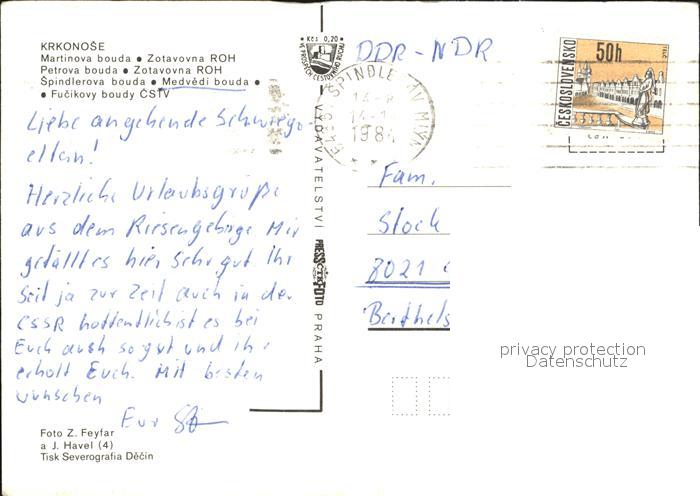 KRKONOŠE
Martinova bouda ● Zotavovna ROH
Petrova bouda ● Zotavovna ROH
Špindlerova bouda ● Medvědí bouda ●
● Fučíkovy boudy ČSTV
Liebe angehende Schwiege-
eltern!
Herzliche Urlaubsgrüße
aus dem Riesengebirge Mir
gefällt es hier sehr gut Ihr
seit ja zur Zeit auch in der
CSSR hoffentlich ist es bei
Euch auch so gut und ihr
erholt Euch. Mit besten
wünschen
Eur
Foto Z. Feyfar
a J. Havel (4)
Tisk Severografia Děčín
Kčs 0,20
VYDAVATELSTVÍ
PRESSFOTO
PRAHA
DDR-NDR
ŠPINDLERŮV MLÝN
1984
ČESKOSLOVENSKO
50h
Fam.
Stock
8021
Berthels
privacy protection
Datenschutz